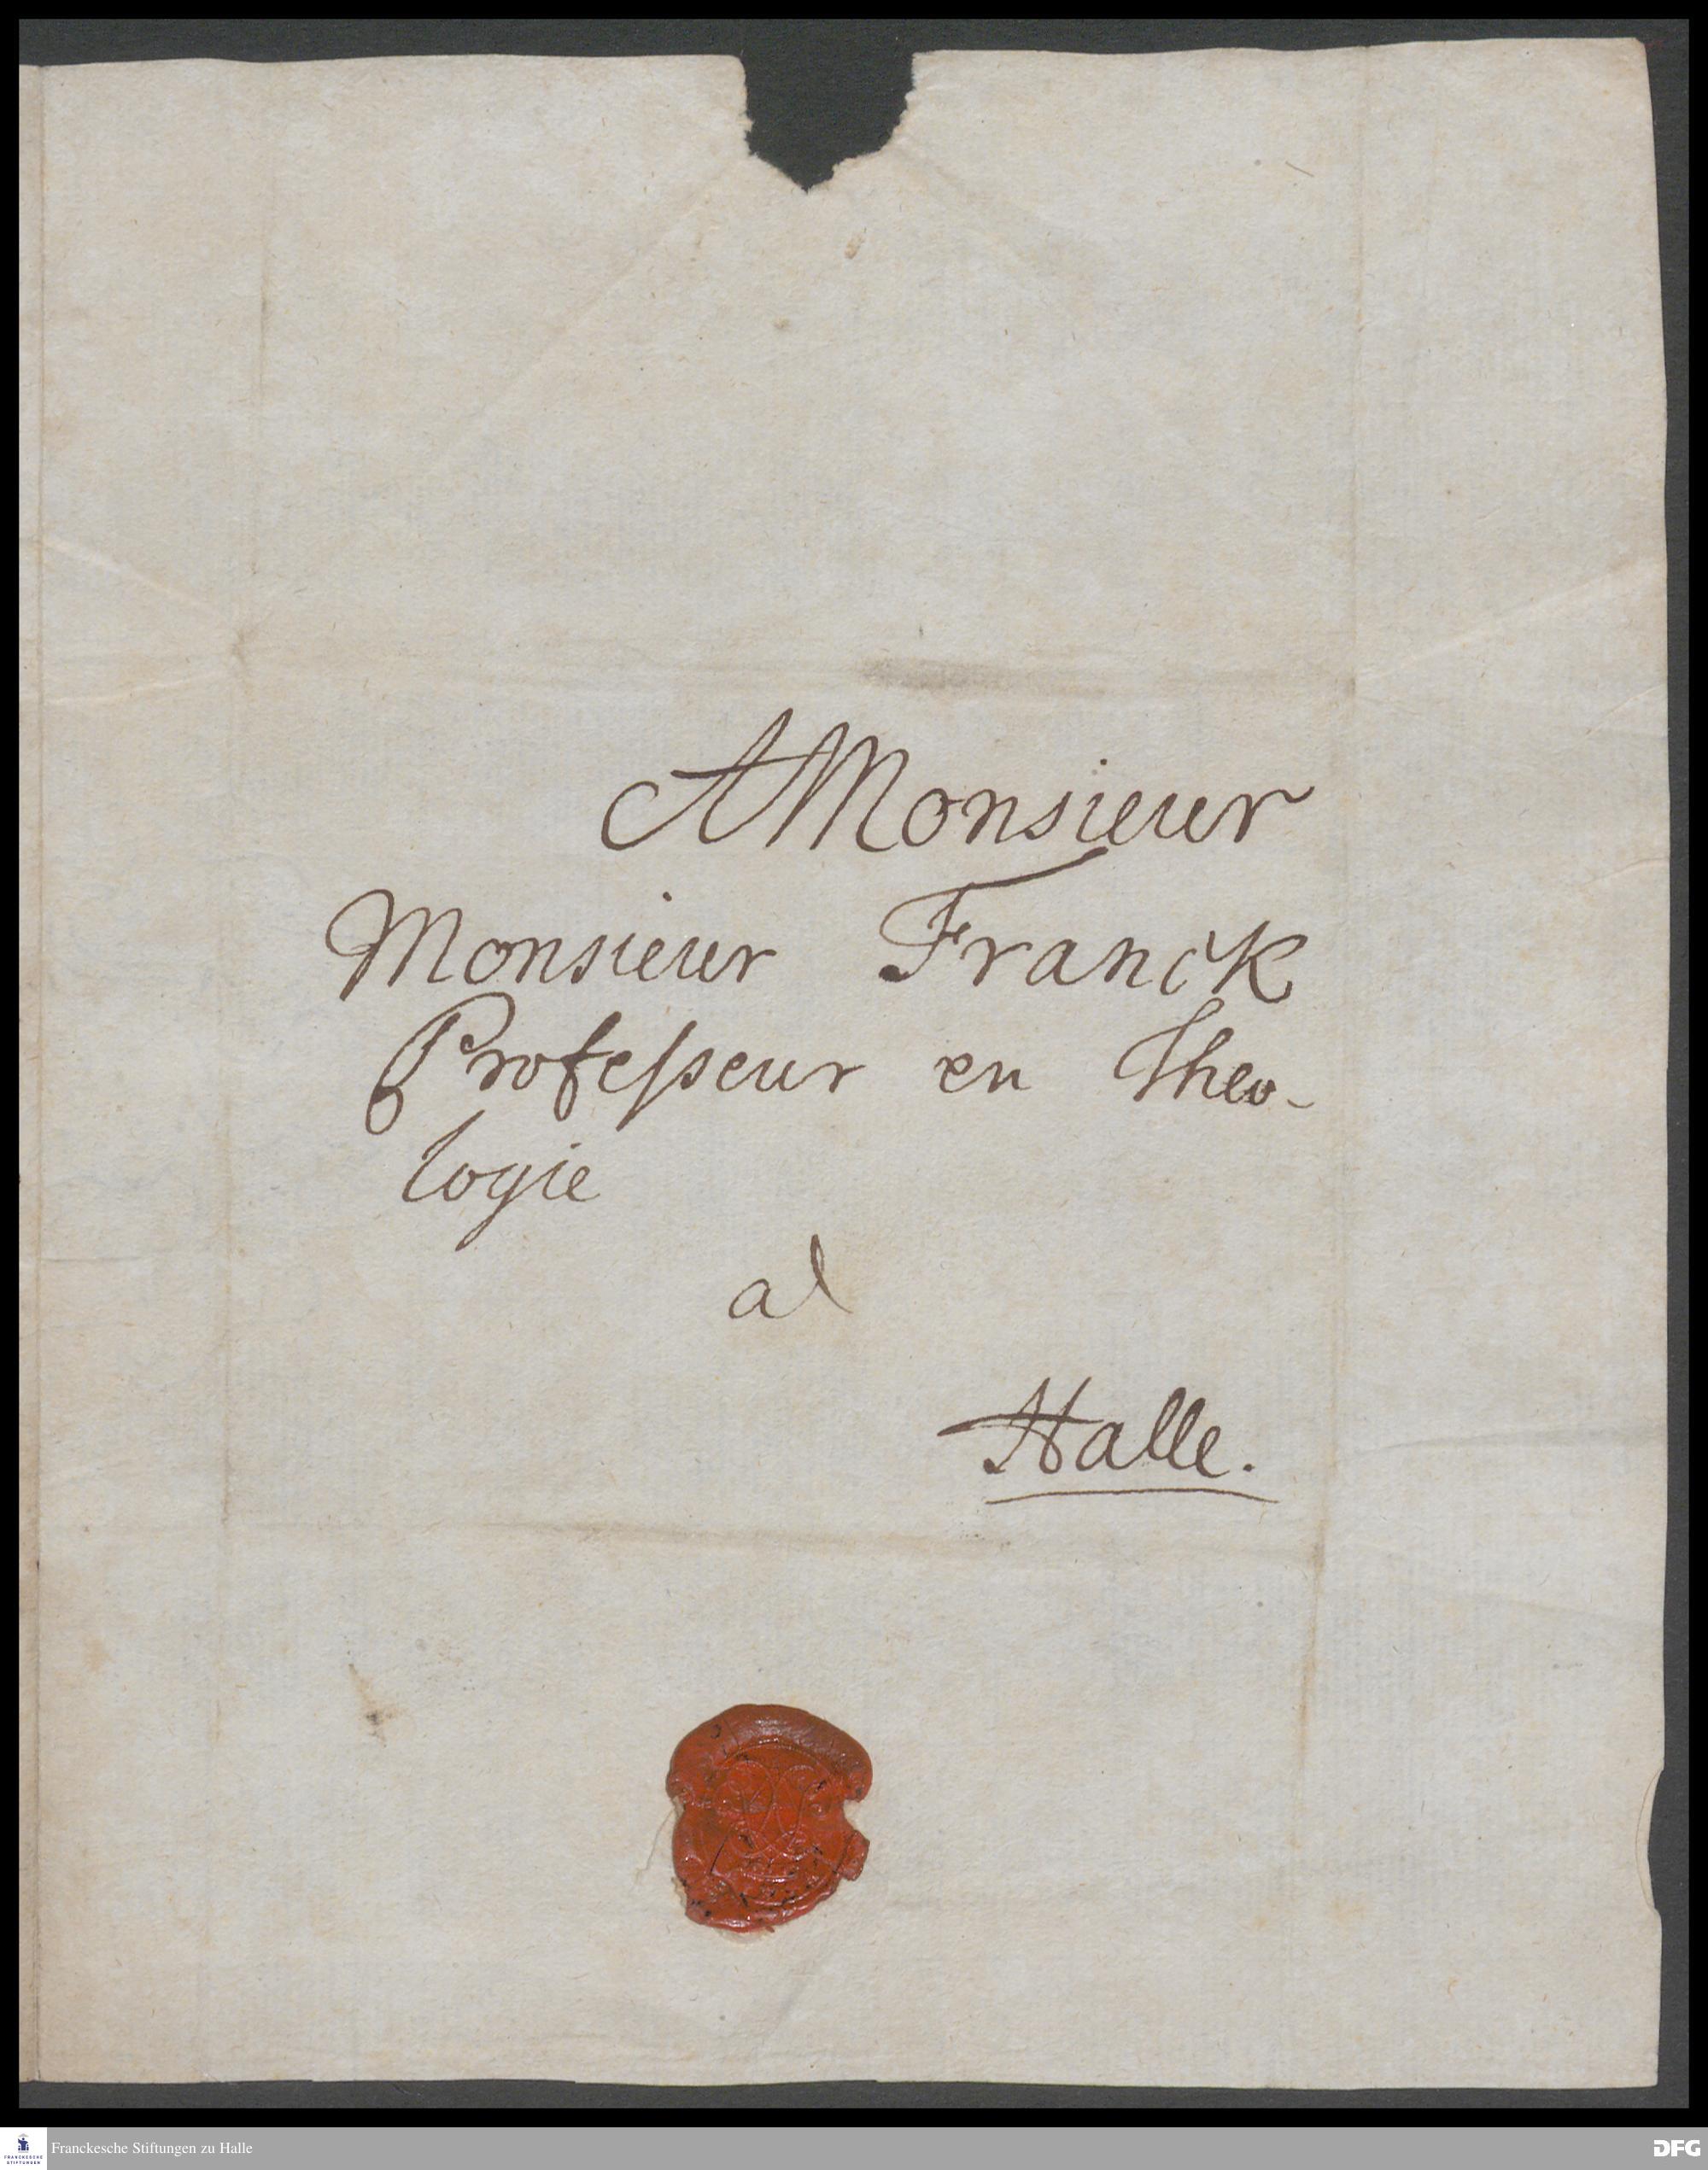 A Monsieur
Monsieur Franck
Professeur en Theo-
logie
al
Halle.
FRANCKESCHE
STIFTUNGEN
Franckesche Stiftungen zu Halle
DFG